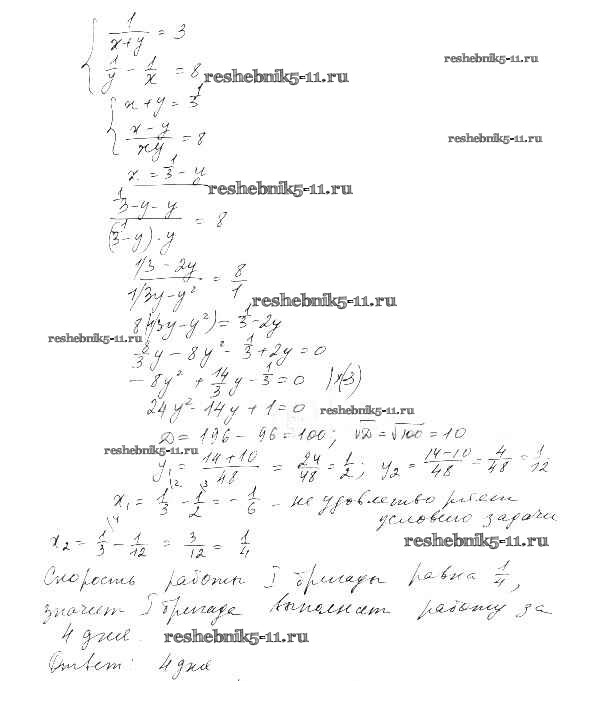 1/(x+y) = 3
1/y - 1/x = 8 reshebnik5-11.ru
reshebnik5-11.ru
x + y = 1/3
(x - y)/(xy) = 8
reshebnik5-11.ru
x = 1/3 - y
reshebnik5-11.ru
(1/3 - y - y)/((1/3 - y)·y) = 8
(1/3 - 2y)/(1/3y - y²) = 8/1
reshebnik5-11.ru
8(1/3y - y²) = 1/3 - 2y
reshebnik5-11.ru
8/3y - 8y² - 1/3 + 2y = 0
- 8y² + 14/3 y - 1/3 = 0 |×(-3)
24y² - 14y + 1 = 0 reshebnik5-11.ru
D = 196 - 96 = 100; √D = √100 = 10
reshebnik5-11.ru
y₁ = (14+10)/48 = 24/48 = 1/2; y₂ = (14-10)/48 = 4/48 = 1/12
x₁ = 1/3 - 1/2 = - 1/6 - не удовлетворяет
условию задачи
x₂ = 1/3 - 1/12 = 3/12 = 1/4
reshebnik5-11.ru
Скорость работы I бригады равна 1/4,
значит I бригада выполнит работу за
4 дня. reshebnik5-11.ru
Ответ: 4 дня